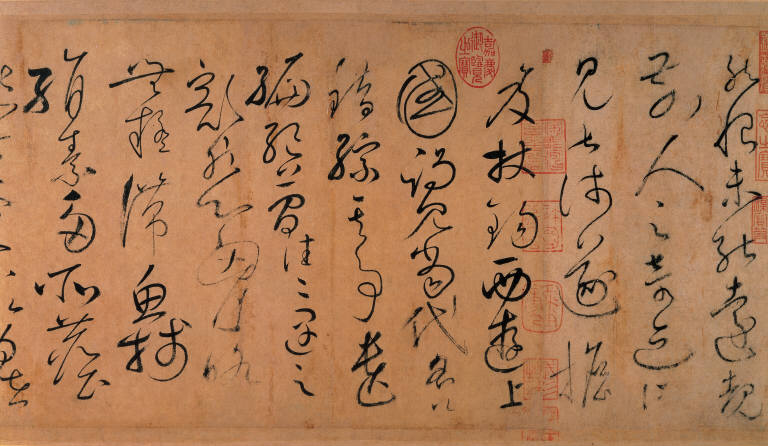 然恨未能遠覩
前人之奇迹所
見甚淺遂擔
笈杖錫西遊上
國謁見當代名公
錯綜其事遺
編絕簡往〻遇之
豁然心胸略
無疑滯魚牋
絹素多所塵點
嘉慶御覽之寶